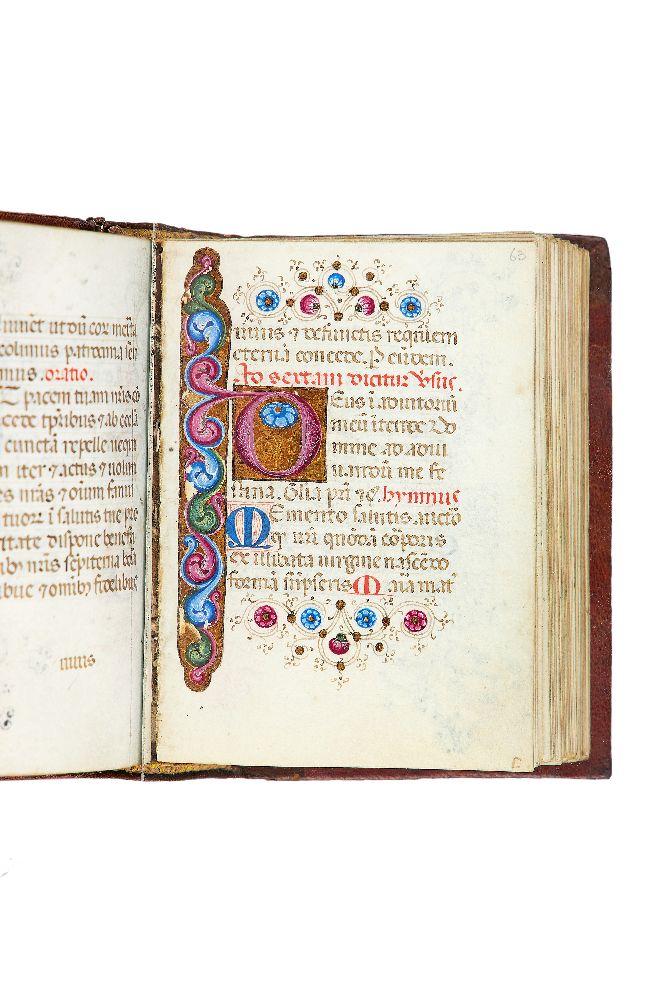 iunct ut oīu cor meīta
colimus patrocinia sen
mus. oratio.
pacem tuam nr̄is cō
cede tpr̄ibus ⁊ ab eccl̄a
cuncta repelle nequi
iter ⁊ actus ⁊ uolun
nr̄as ⁊ oīum famu
ī salutis tue pros
itate dispone benefa
nr̄is sempiterna bona
⁊ omīb fidelibus
nius
63
iuius ⁊ defunctis requiem
eternā concede. P eūdem.
Ad sextam dicitur ūsus.
Deus ī adiutoriū
meū ītende Do
mine ad adiu
uandū me fe
stina. Glīa pr̄i ⁊c̄. hymnus
Memento salutis aucto
qꝫ nr̄i quondā corporis
ex illibata uirgine nascendo
formā sūpseris Maria mat̄